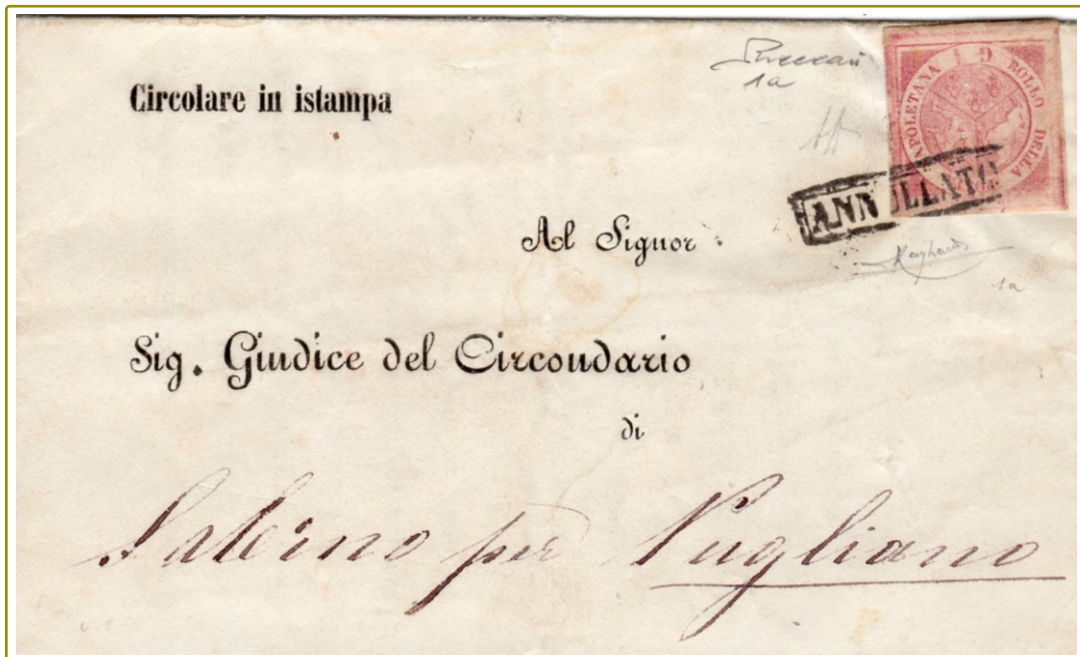 Circolare in istampa
1a
G 1 BOLLO DELLA NAPOLETANA
ANNULLATO
Al Signor
1a
Sig. Giudice del Circondario
di
Salerno per Pugliano